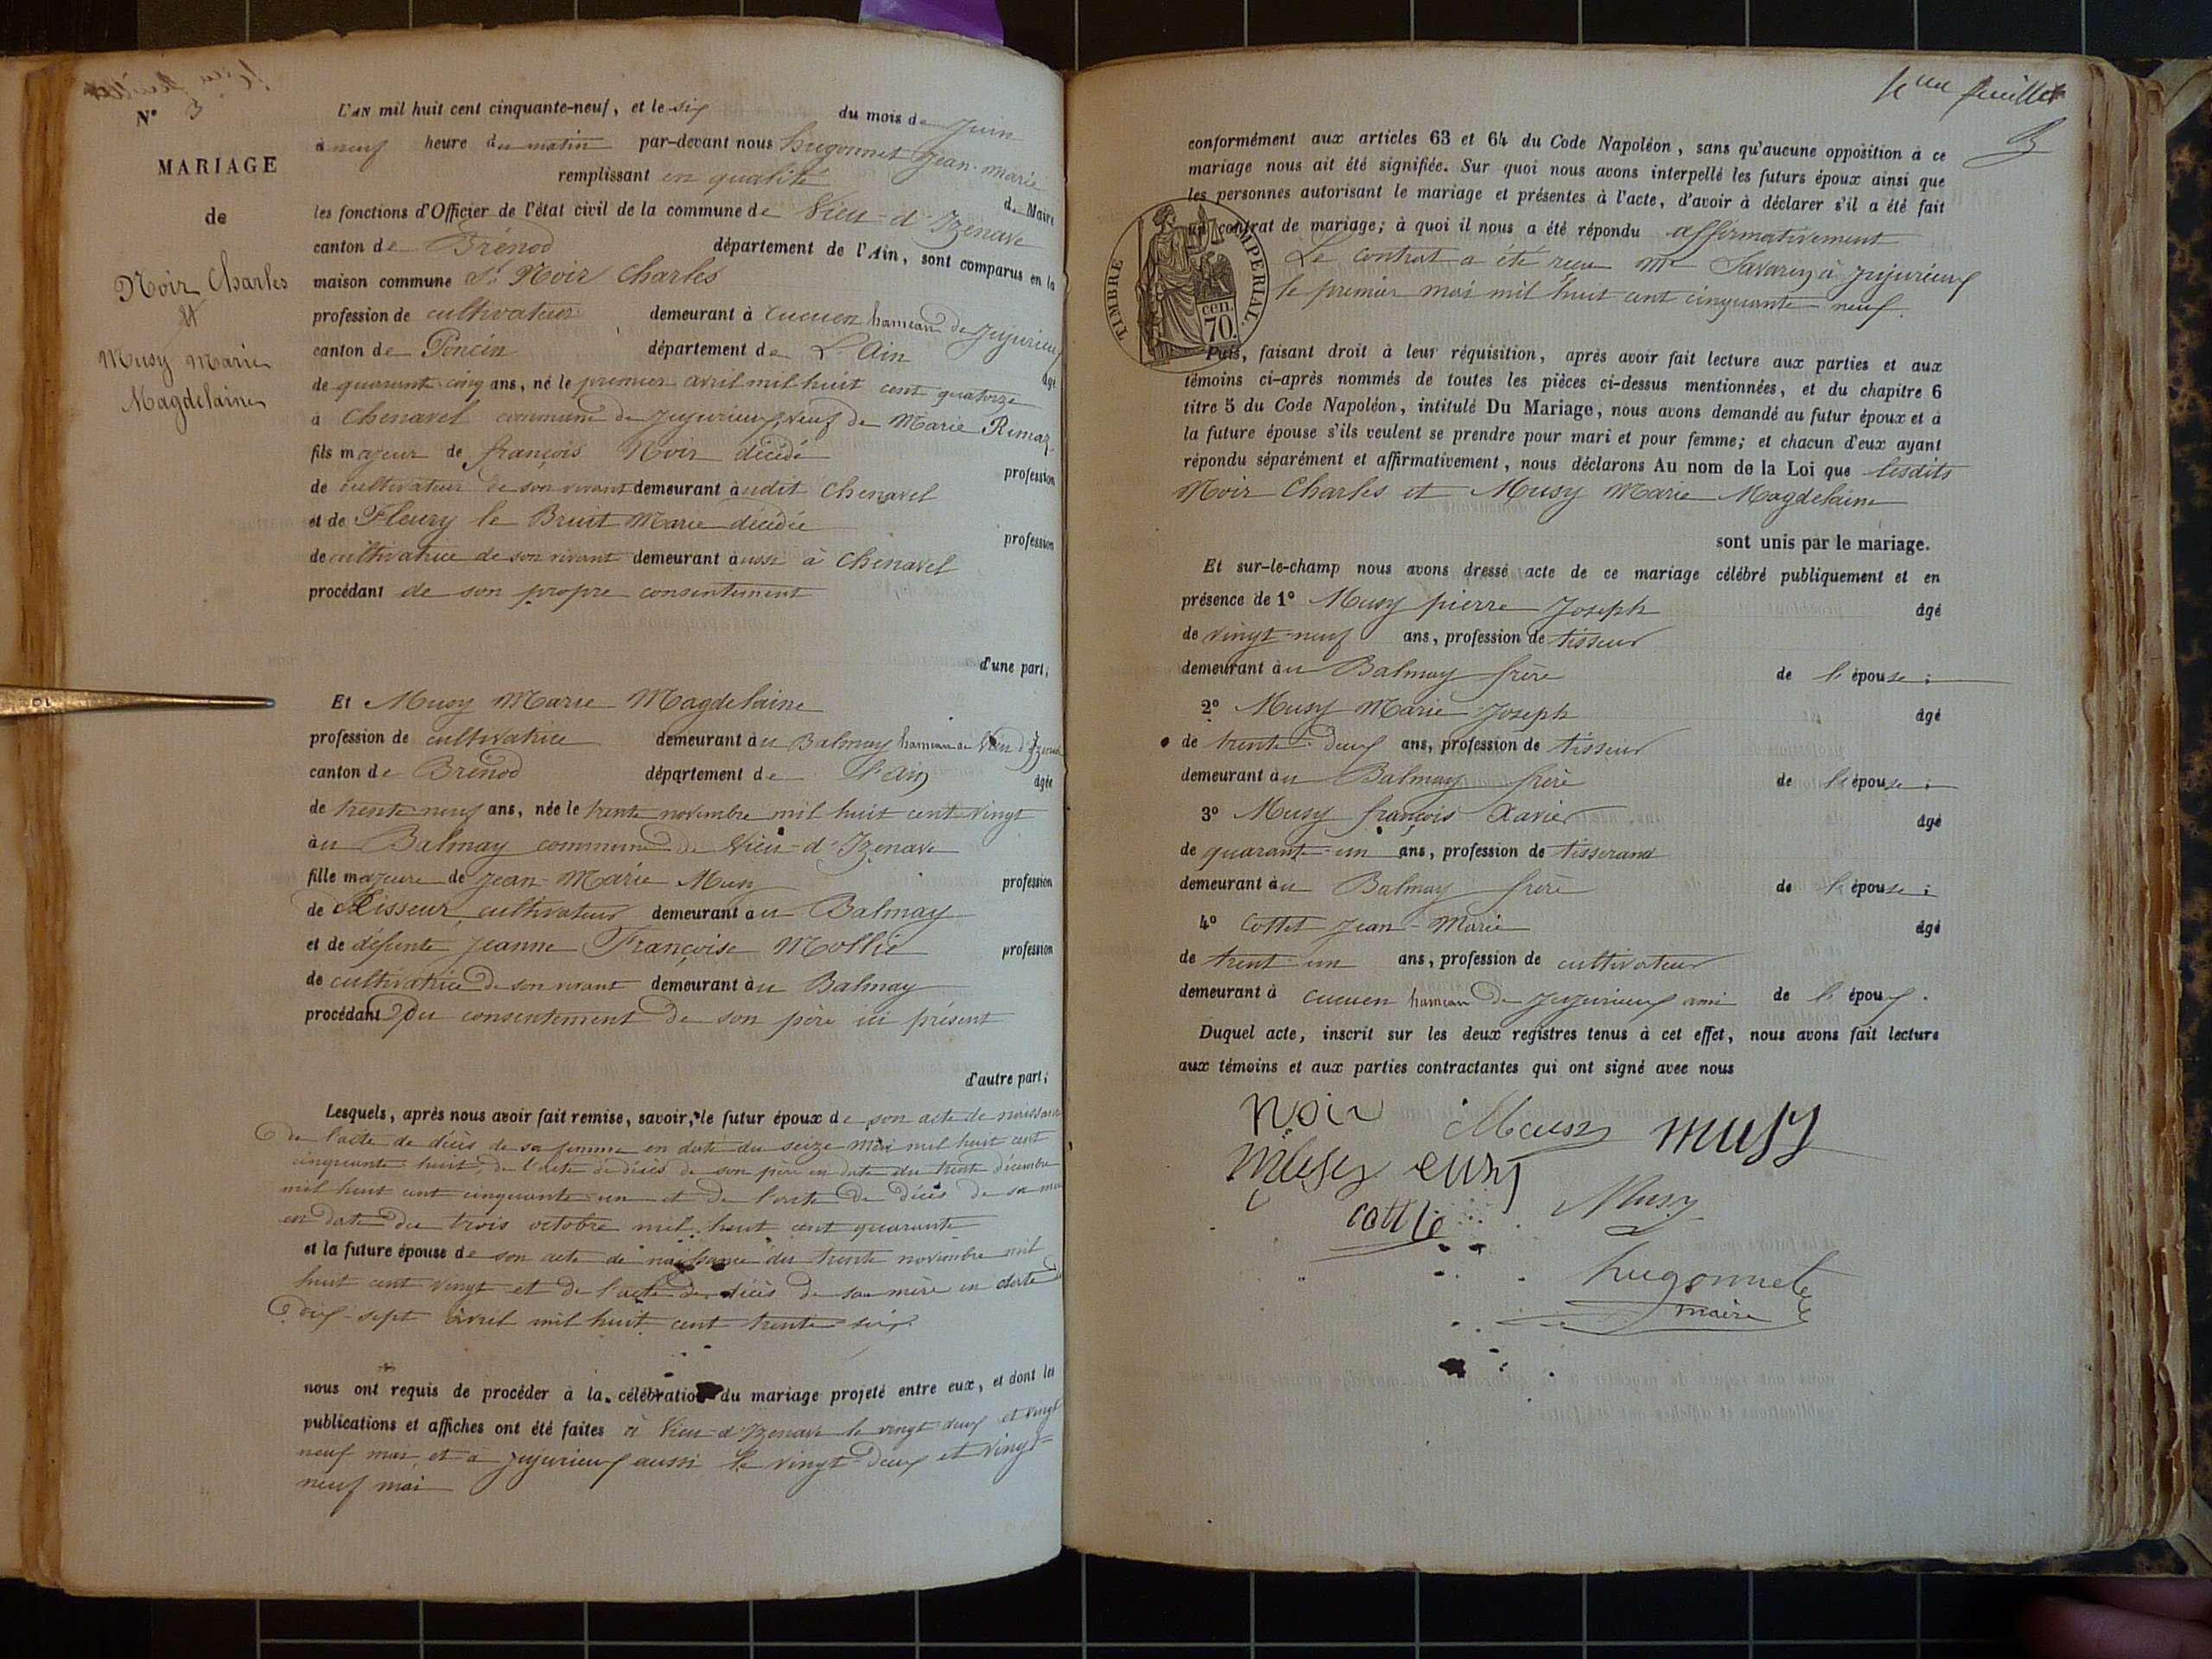 N° 3
MARIAGE
de
Noir Charles
et
Musy Marie
Magdelaine
L'AN mil huit cent cinquante-neuf, et le six du mois de Juin
à neuf heure du matin par-devant nous hugonnet Jean-marie
remplissant en qualité de Maire
les fonctions d'Officier de l'état civil de la commune de Vieu-d'Izenave
canton de Brénod département de l'Ain, sont comparus en la
maison commune Sr Noir Charles
profession de cultivateur demeurant à Cucuen hameau de Jujurieux
canton de Poncin département de L'Ain âgé
de quarante-cinq ans, né le premier avril mil huit cent quatorze
à Chenavel commune de Jujurieux, veuf de Marie Rimaz
fils majeur de françois Noir décédé profession
de cultivateur de son vivant demeurant audit Chenavel
et de Fleury le Bruit Marie décédée profession
de cultivatrice de son vivant demeurant aussi à Chenavel
procédant de son propre consentement
d'une part;
Et Musy Marie Magdelaine
profession de cultivatrice demeurant au Balmay hameau de Vieu d'Izenave
canton de Brénod département de l'Ain âgée
de trente-neuf ans, née le trente novembre mil huit cent vingt
au Balmay commune de Vieu-d'Izenave
fille majeure de Jean-Marie Musy profession
de tisseur cultivateur demeurant au Balmay
et de défunte Jeanne Françoise Mollie profession
de cultivatrice de son vivant demeurant au Balmay
procédant du consentement de son père ici présent
d'autre part;
Lesquels, après nous avoir fait remise, savoir, le futur époux de son acte de naissance
de l'acte de décès de sa femme en date du seize mai mil huit cent
cinquante-huit, de l'acte de décès de son père en date du trente décembre
mil huit cent cinquante-un et de l'acte de décès de sa mère
en date du trois octobre mil huit cent quarante
et la future épouse de son acte de naissance du trente novembre mil
huit cent vingt et de l'acte de décès de sa mère en date du
dix-sept avril mil huit cent trente six.
nous ont requis de procéder à la célébration du mariage projeté entre eux, et dont les
publications et affiches ont été faites à Vieu-d'Izenave le vingt-deux et vingt
neuf mai et à Jujurieux aussi le vingt-deux et vingt-
neuf mai
feuillet
conformément aux articles 63 et 64 du Code Napoléon, sans qu'aucune opposition à ce
mariage nous ait été signifiée. Sur quoi nous avons interpellé les futurs époux ainsi que
les personnes autorisant le mariage et présentes à l'acte, d'avoir à déclarer s'il a été fait
un contrat de mariage; à quoi il nous a été répondu affirmativement
Le contrat a été reçu Me Savarin à Jujurieux
le premier mai mil huit cent cinquante-neuf.
TIMBRE IMPERIAL.
70 cen.
Puis, faisant droit à leur réquisition, après avoir fait lecture aux parties et aux
témoins ci-après nommés de toutes les pièces ci-dessus mentionnées, et du chapitre 6
titre 5 du Code Napoléon, intitulé Du Mariage, nous avons demandé au futur époux et à
la future épouse s'ils veulent se prendre pour mari et pour femme; et chacun d'eux ayant
répondu séparément et affirmativement, nous déclarons Au nom de la Loi que lesdits
Noir Charles et Musy Marie Magdelaine
sont unis par le mariage.
Et sur-le-champ nous avons dressé acte de ce mariage célébré publiquement et en
présence de 1° Musy pierre Joseph âgé
de vingt-neuf ans, profession de tisseur
demeurant au Balmay frère de l'épouse;
2° Musy Marie Joseph âgé
de trente-deux ans, profession de tisseur
demeurant au Balmay frère de l'épouse;
3° Musy françois Xavier âgé
de quarante-un ans, profession de tisserand
demeurant au Balmay frère de l'épouse;
4° Cottet Jean-Marie âgé
de trent-un ans, profession de cultivateur
demeurant à cucuen hameau de Jujurieux ami de l'époux.
Duquel acte, inscrit sur les deux registres tenus à cet effet, nous avons fait lecture
aux témoins et aux parties contractantes qui ont signé avec nous
Noir Musy musy
Musy
Musy
hugonnet
maire